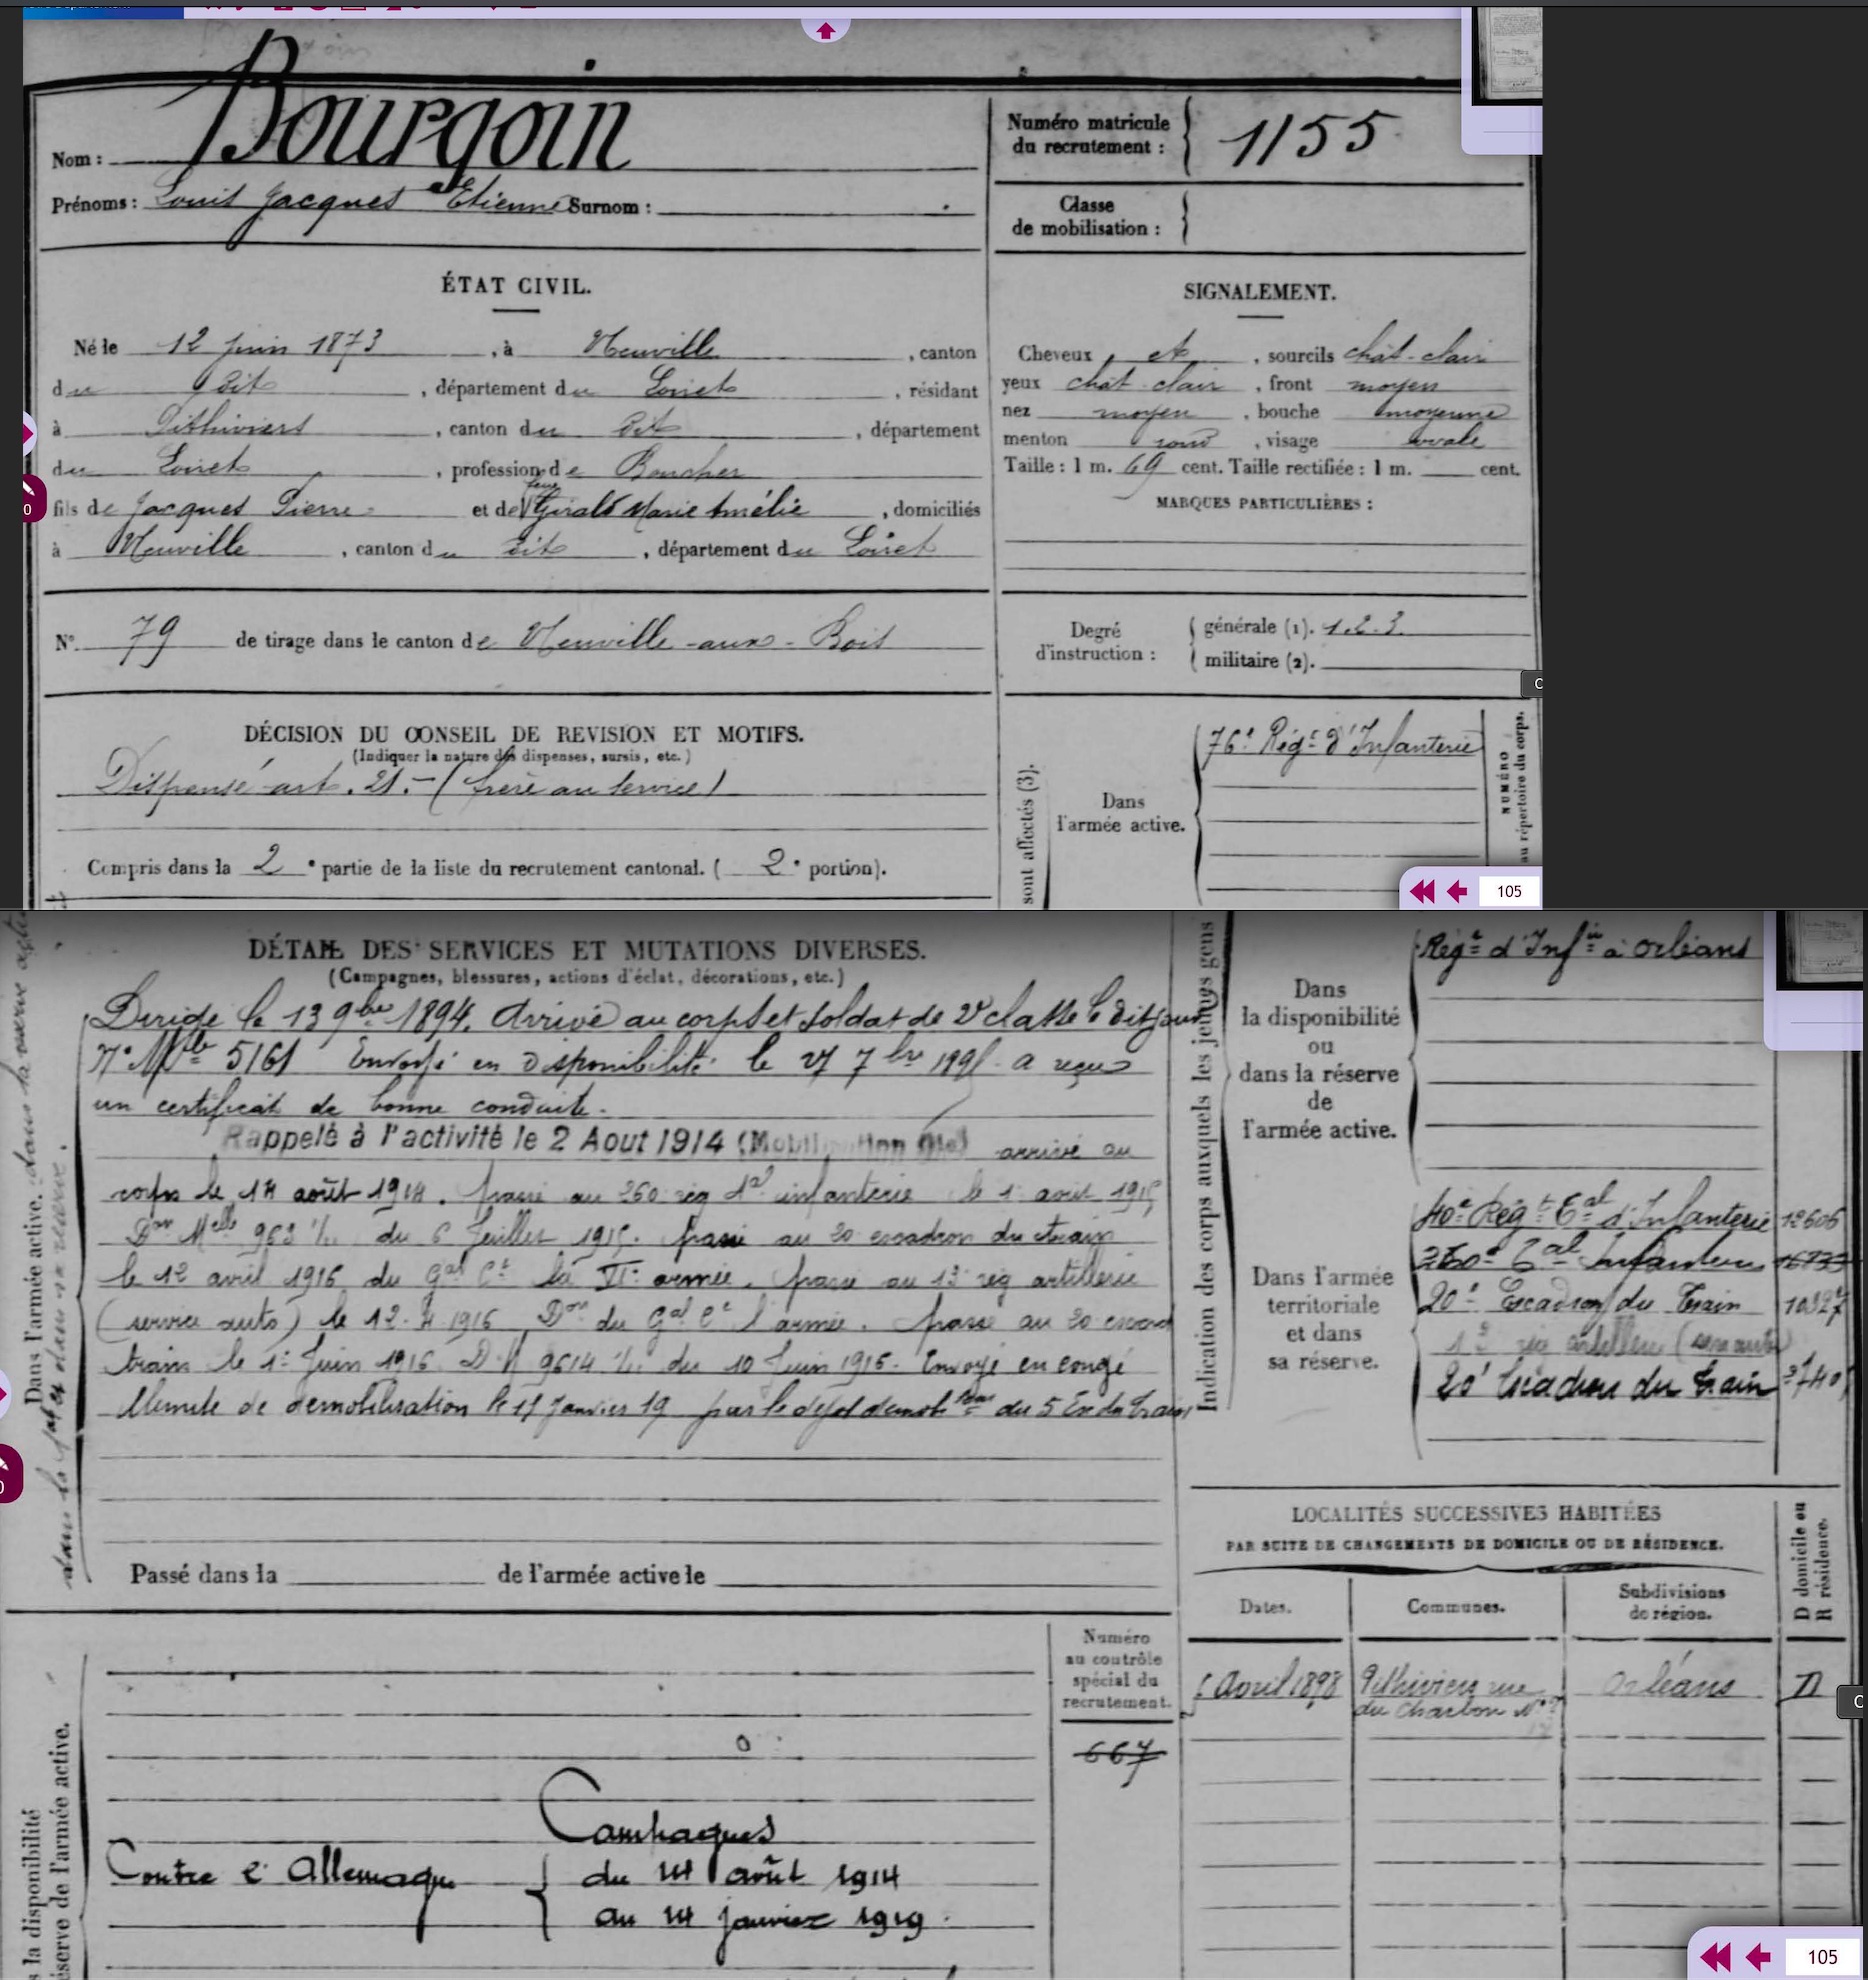 Bourgoin
Nom :
Prénoms : Louis Jacques Etienne Surnom :
Numéro matricule
du recrutement : 1155
Classe
de mobilisation :
ÉTAT CIVIL.
Né le 12 juin 1873, à Neuville, canton
du dit, département du Loiret, résidant
à Pithiviers, canton du dit, département
du Loiret, profession de Boucher
fils de Jacques Pierre et de feue Girald Marie Amélie, domiciliés
à Neuville, canton du dit, département du Loiret
SIGNALEMENT.
Cheveux et, sourcils chât-clair
yeux chat clair, front moyen
nez moyen, bouche moyenne
menton rond, visage ovale
Taille : 1 m. 69 cent. Taille rectifiée : 1 m. cent.
MARQUES PARTICULIÈRES :
N° 79 de tirage dans le canton de Neuville-aux-Bois
Degré
d'instruction :
générale (1). 1.2.3.
militaire (2).
DÉCISION DU CONSEIL DE REVISION ET MOTIFS.
(Indiquer la nature des dispenses, sursis, etc.)
Dispensé art. 21. - (frère au service)
Compris dans la 2e partie de la liste du recrutement cantonal. ( 2e portion).
sont affectés (3).
Dans
l'armée active.
76e Régt d'Infanterie
NUMÉRO
au répertoire du corps.
105
DÉTAIL DES SERVICES ET MUTATIONS DIVERSES.
(Campagnes, blessures, actions d'éclat, décorations, etc.)
Dirigé le 13 9bre 1894. Arrivé au corps et soldat de 2e classe le dit jour
N° Mle 5161 Envoyé en disponibilité le 27 7bre 189 a reçu
un certificat de bonne conduite.
Rappelé à l'activité le 2 Aout 1914 (Mobilisation Gle) arrivé au
corps le 14 août 1914. passé au 260 rég d' infanterie le 1 août 1915
Don Melle 963 du 6 Juillet 1915. passé au 20 escadron du train
le 12 avril 1916 du Gal Ct la VIe armée. passé au 13 rég artillerie
(service auto) le 12-4-1916 Don du Gal Ct l'armée. passé au 20 escad
train le 1er Juin 1916 D.M 9614 du 10 Juin 1916. Envoyé en congé
illimité de démobilisation le 17 Janvier 19 par le dépôt démob du 5 Esc du train
Passé dans la de l'armée active le
Dans l'armée active.
Indication des corps auxquels les jeunes gens
Dans
la disponibilité
ou
dans la réserve
de
l'armée active.
Régt d'Infie à Orléans
Dans l'armée
territoriale
et dans
sa réserve.
40e Régt Tal d'Infanterie 12606
260e Tal Infanterie 16733
20e Escadron du Train 10327
13 rég artillerie (serv auto)
20e Escadron du Train
LOCALITÉS SUCCESSIVES HABITÉES
PAR SUITE DE CHANGEMENTS DE DOMICILE OU DE RÉSIDENCE.
Dates.
Communes.
Subdivisions
de région.
D domicile ou
R résidence.
Avril 1898 Pithiviers rue Orléans D
du Charbon N°
Numéro
au contrôle
spécial du
recrutement.
667
Campagnes
Contre l'Allemagne
du 14 août 1914
au 14 janvier 1919.
la disponibilité
réserve de l'armée active.
105